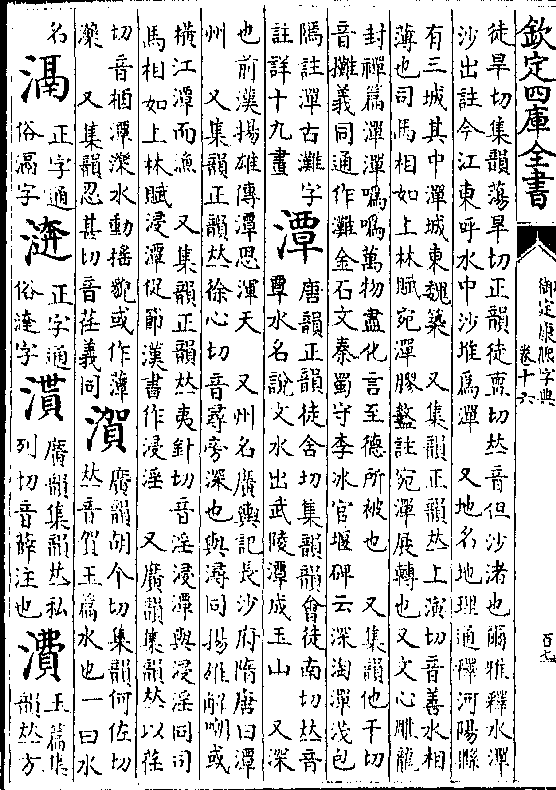 欽定四庫全書
御定康熙字典
卷十六
百七
徒旱切集韻蕩旱切正韻徒亶切𠀤音但沙渚也爾雅釋水潬
沙出註今江東呼水中沙堆爲潬 又地名地理通釋河陽縣
有三城其中潬城東魏築 又集韻正韻𠀤上演切音善水相
薄也司馬相如上林賦宛潬膠盭註宛潬展轉也又文心雕龍
封禪篇潬潬噅噅萬物盡化言至德所被也 又集韻他干切
音攤義同通作灘金石文秦蜀守李冰官堰碑云深淘潬淺包
隝註潬古灘字
註詳十九畫
潭
唐韻正韻徒含切集韻韻會徒南切𠀤音
覃水名說文水出武陵潭成玉山 又深
也前漢揚雄傳潭思渾天 又州名廣輿記長沙府隋唐曰潭
州 又集韻正韻𠀤徐心切音尋旁深也與潯同揚雄解嘲或
橫江潭而漁 又集韻正韻𠀤夷針切音淫浸潭與浸淫同司
馬相如上林賦浸潭促節漢書作浸淫 又廣韻集韻𠀤以荏
切音潭濼水動搖貌或作
濼 又集韻忍甚切音荏義同
廣韻胡个切集韻何佐切
𠀤音賀玉篇水也一曰水
名
正字通
俗滆字
正字通
俗淹字
廣韻集韻𠀤私
列切音薛注也
玉篇集
韻𠀤方